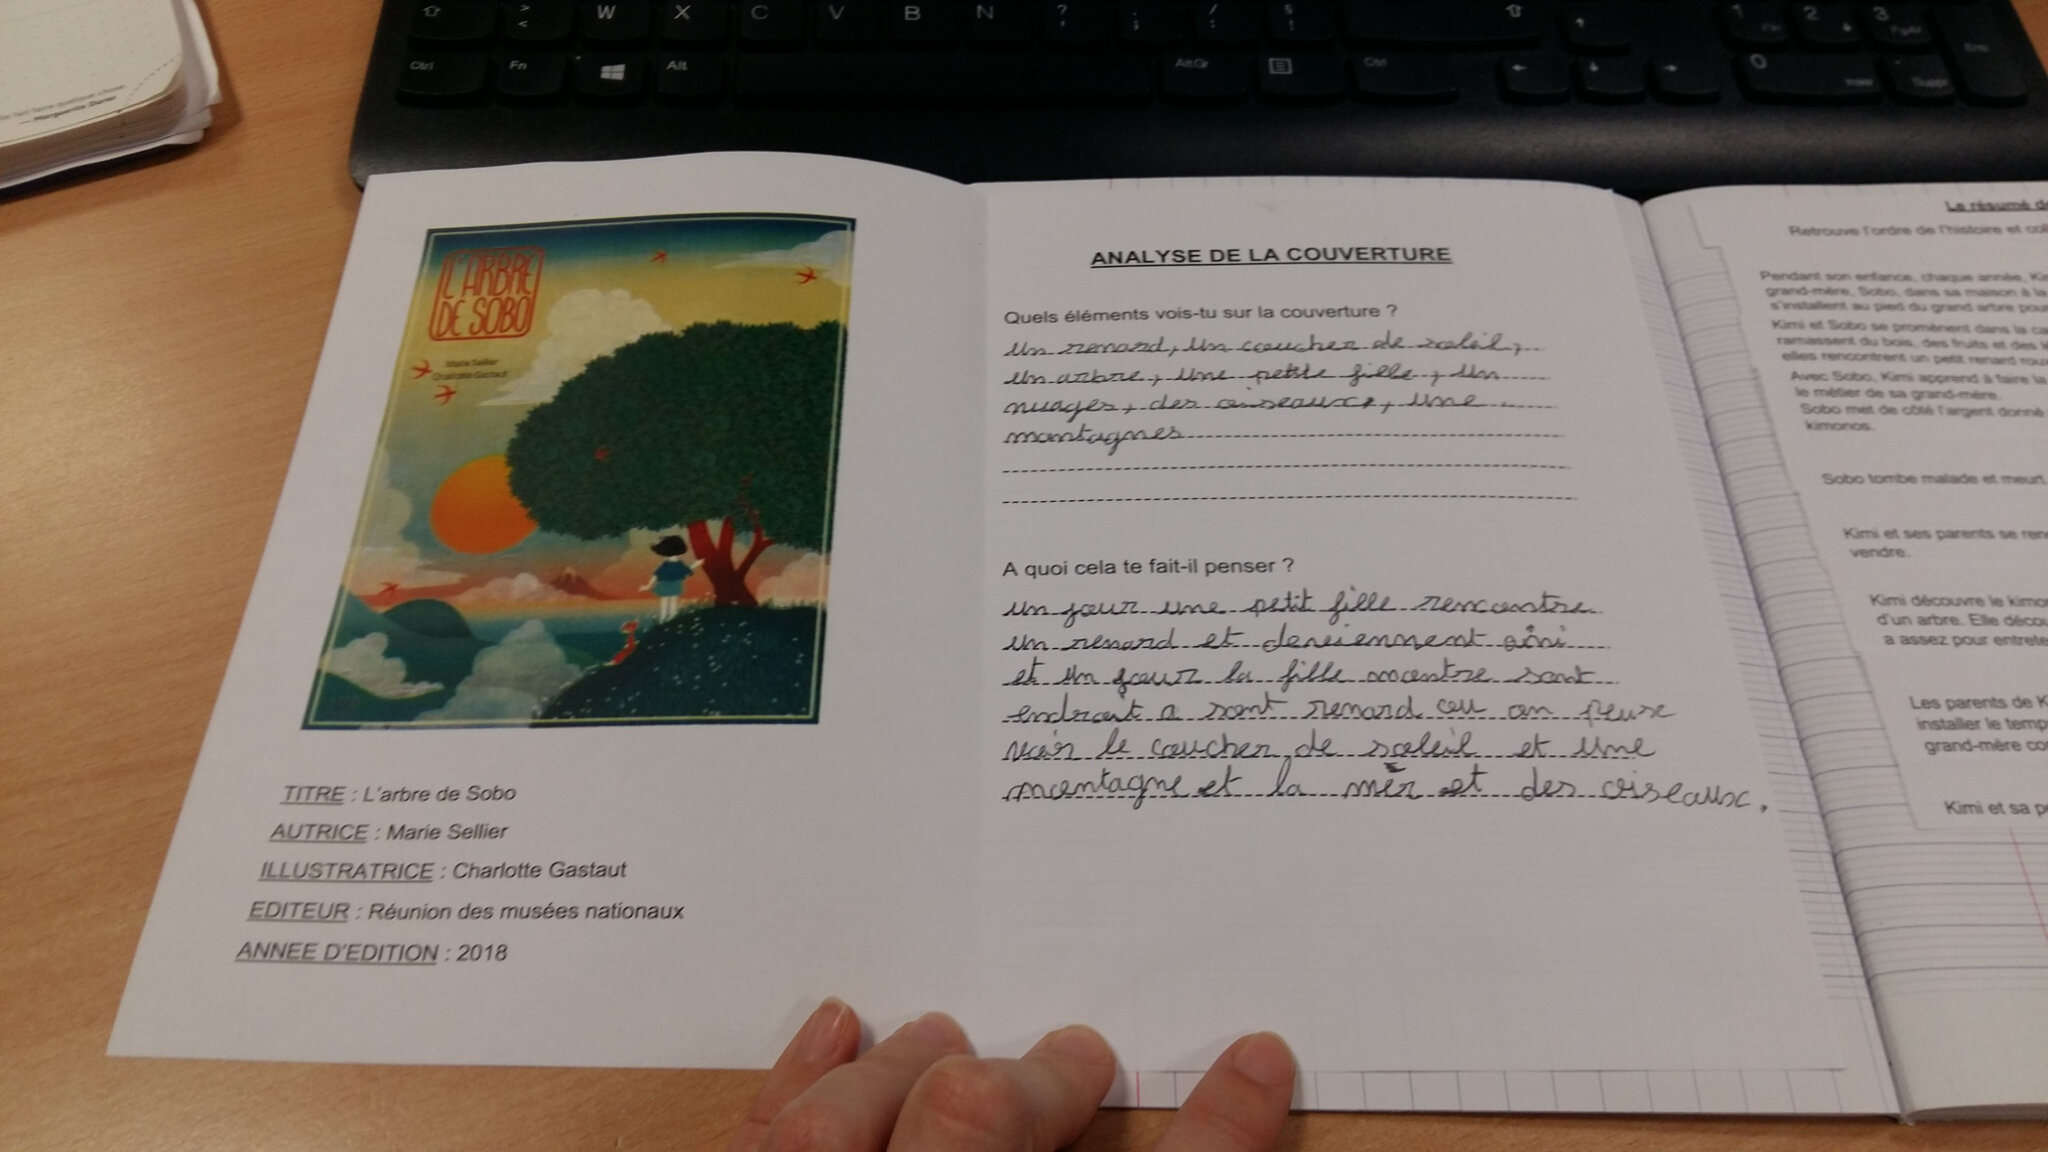 W X C V B N
Ctrl Fn Alt Alt Gr Ctrl
1 2 3
0
Marguerite Duras
L'ARBRE
DE SOBO
Marie Sellier
Charlotte Gastaut
TITRE : L'arbre de Sobo
AUTRICE : Marie Sellier
ILLUSTRATRICE : Charlotte Gastaut
EDITEUR : Réunion des musées nationaux
ANNEE D'EDITION : 2018
ANALYSE DE LA COUVERTURE
Quels éléments vois-tu sur la couverture ?
un renard, un coucher de soleil,
un arbre, une petite fille, un
nuages, des oiseaux, une
montagnes
A quoi cela te fait-il penser ?
un jour une petit fille rencontre
un renard et deviennent ami
et un jour la fille montre sont
endroit a sont renard ou on peuse
voir le coucher de soleil et une
montagne et la mèr et des oiseaux.
Le résumé de
Retrouve l'ordre de l'histoire et col
Pendant son enfance, chaque année, Ki
grand-mère, Sobo, dans sa maison à la
s'installent au pied du grand arbre pou
Kimi et Sobo se promènent dans la ca
ramassent du bois, des fruits et des
elles rencontrent un petit renard roux
Avec Sobo, Kimi apprend à faire la
le métier de sa grand-mère.
Sobo met de côté l'argent donné
kimonos.
Sobo tombe malade et meurt.
Kimi et ses parents se ren
vendre.
Kimi découvre le kimo
d'un arbre. Elle décou
a assez pour entrete
Les parents de K
installer le temp
grand-mère co
Kimi et sa p